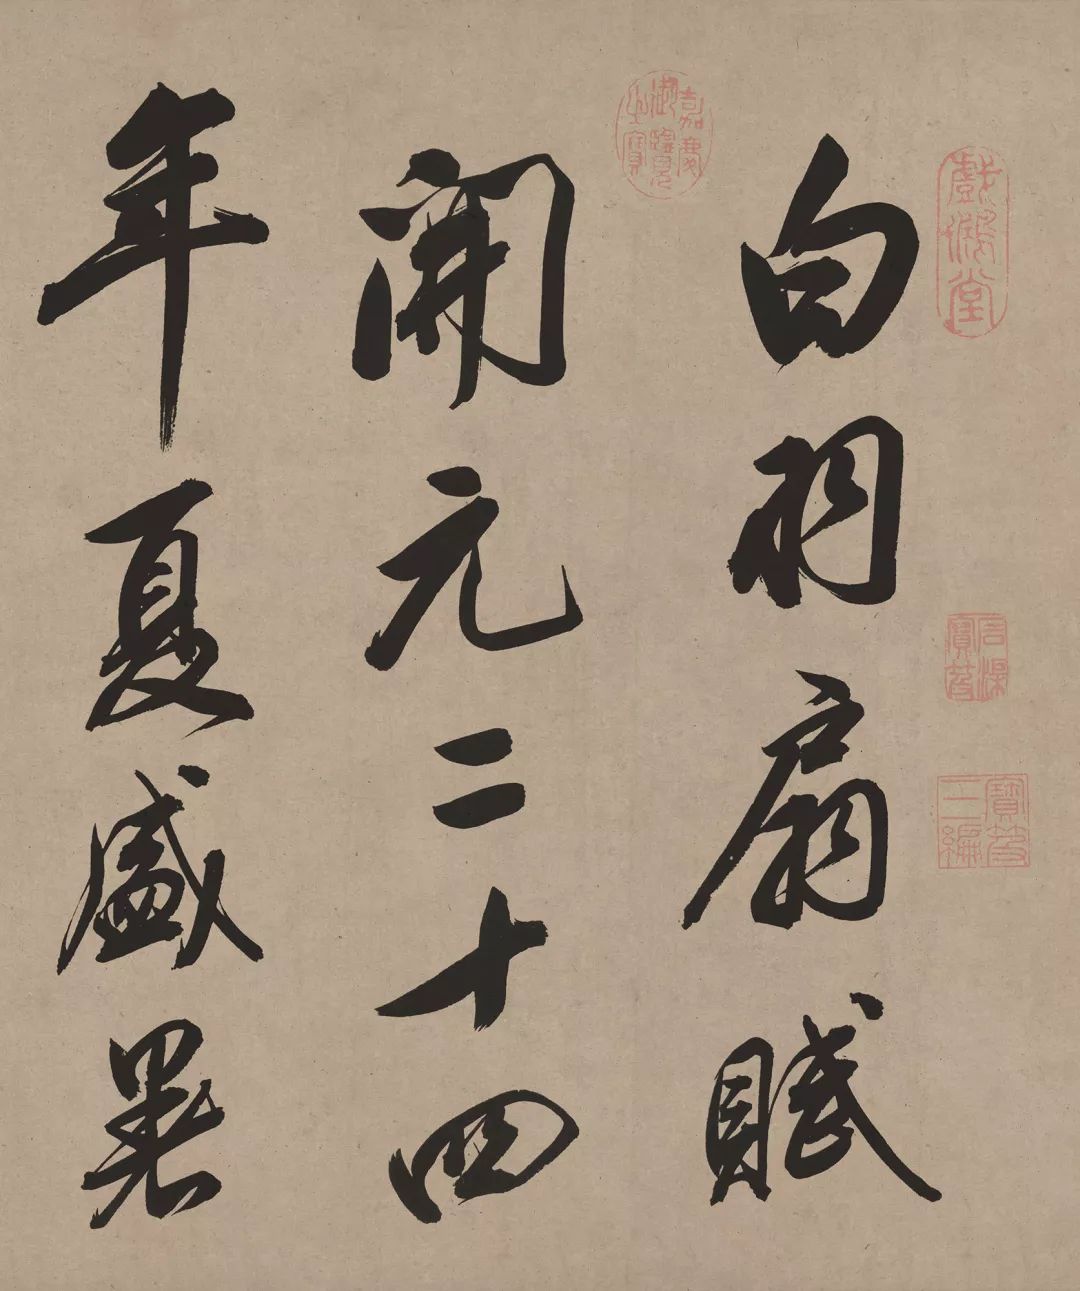 白羽扇賦
開元二十四
年夏盛暑
戲鴻堂
嘉慶御覽之寶
寶笈三編